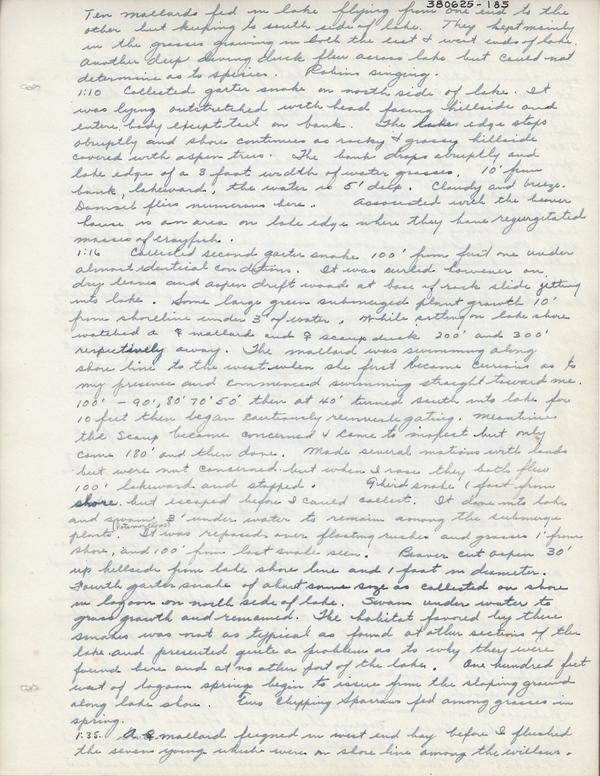 380625-185
Ten mallards fed in lake flying from one end to the
other but keeping to south side of lake. They kept mainly
in the grasses growing in both the east & west ends of lake.
Another deep diving duck flew across lake but could not
determine as to species. Robins singing.
1:10 Collected garter snake on north side of lake. It
was lying outstretched with head facing hillside and
entire body except tail on bank. The lake edge stops
abruptly and shore continues as rocky & grassy hillside
covered with aspen trees. The bank drops abruptly and
lake edge of a 3 foot width of water grasses. 10' from
bank, lakeward, the water is 5' deep. Cloudy and breeze.
Damsel flies numerous here. Associated with the beaver
house is an area on lake edge where they have regurgitated
masses of crayfish.
1:16 Collected second garter snake 100' from first one under
almost identical conditions. It was curled however on
dry leaves and aspen drift wood at base of rock slide jetting
into lake. Some large green submerged plant growth 10'
from shoreline under 3' of water. While sitting on lake shore
watched a ♀ mallard and ♀ scaup duck 200' and 300'
respectively away. The mallard was swimming along
shore line to the west when she first became curious as to
my presence and commenced swimming straight toward me.
100' - 90', 80' 70' 50' then at 40' turned south into lake for
10 feet then began cautiously reinvestigating. Meantime
the Scaup became concerned & came to inspect but only
came 180' and then done. Made several motions with hands
but were not concerned but when I rose they both flew
100' lakeward and stopped. Third snake 1 foot from
shore but escaped before I could collect. It dove into lake
and swam 3' under water to remain among the submerge
plants. It was reposed over floating rushes and grasses 1' from
shore, and 100' from last snake seen. Beaver cut aspen 30'
up hillside from lake shore line and 1 foot in diameter.
Fourth garter snake of about same size as collected on shore
in lagoon on north side of lake. Swam under water to
grass growth and remained. The habitat favored by these
snakes was not as typical as found at other sections of the
lake and presented quite a problem as to why they were
found here and at no other part of the lake. One hundred feet
west of lagoon springs begin to issue from the sloping ground
along lake shore. Two Chipping Sparrows fed among grasses in
spring.
1:35. A ♀ mallard feigned in west end bay before I flushed
the seven young which were on shore line among the willows.